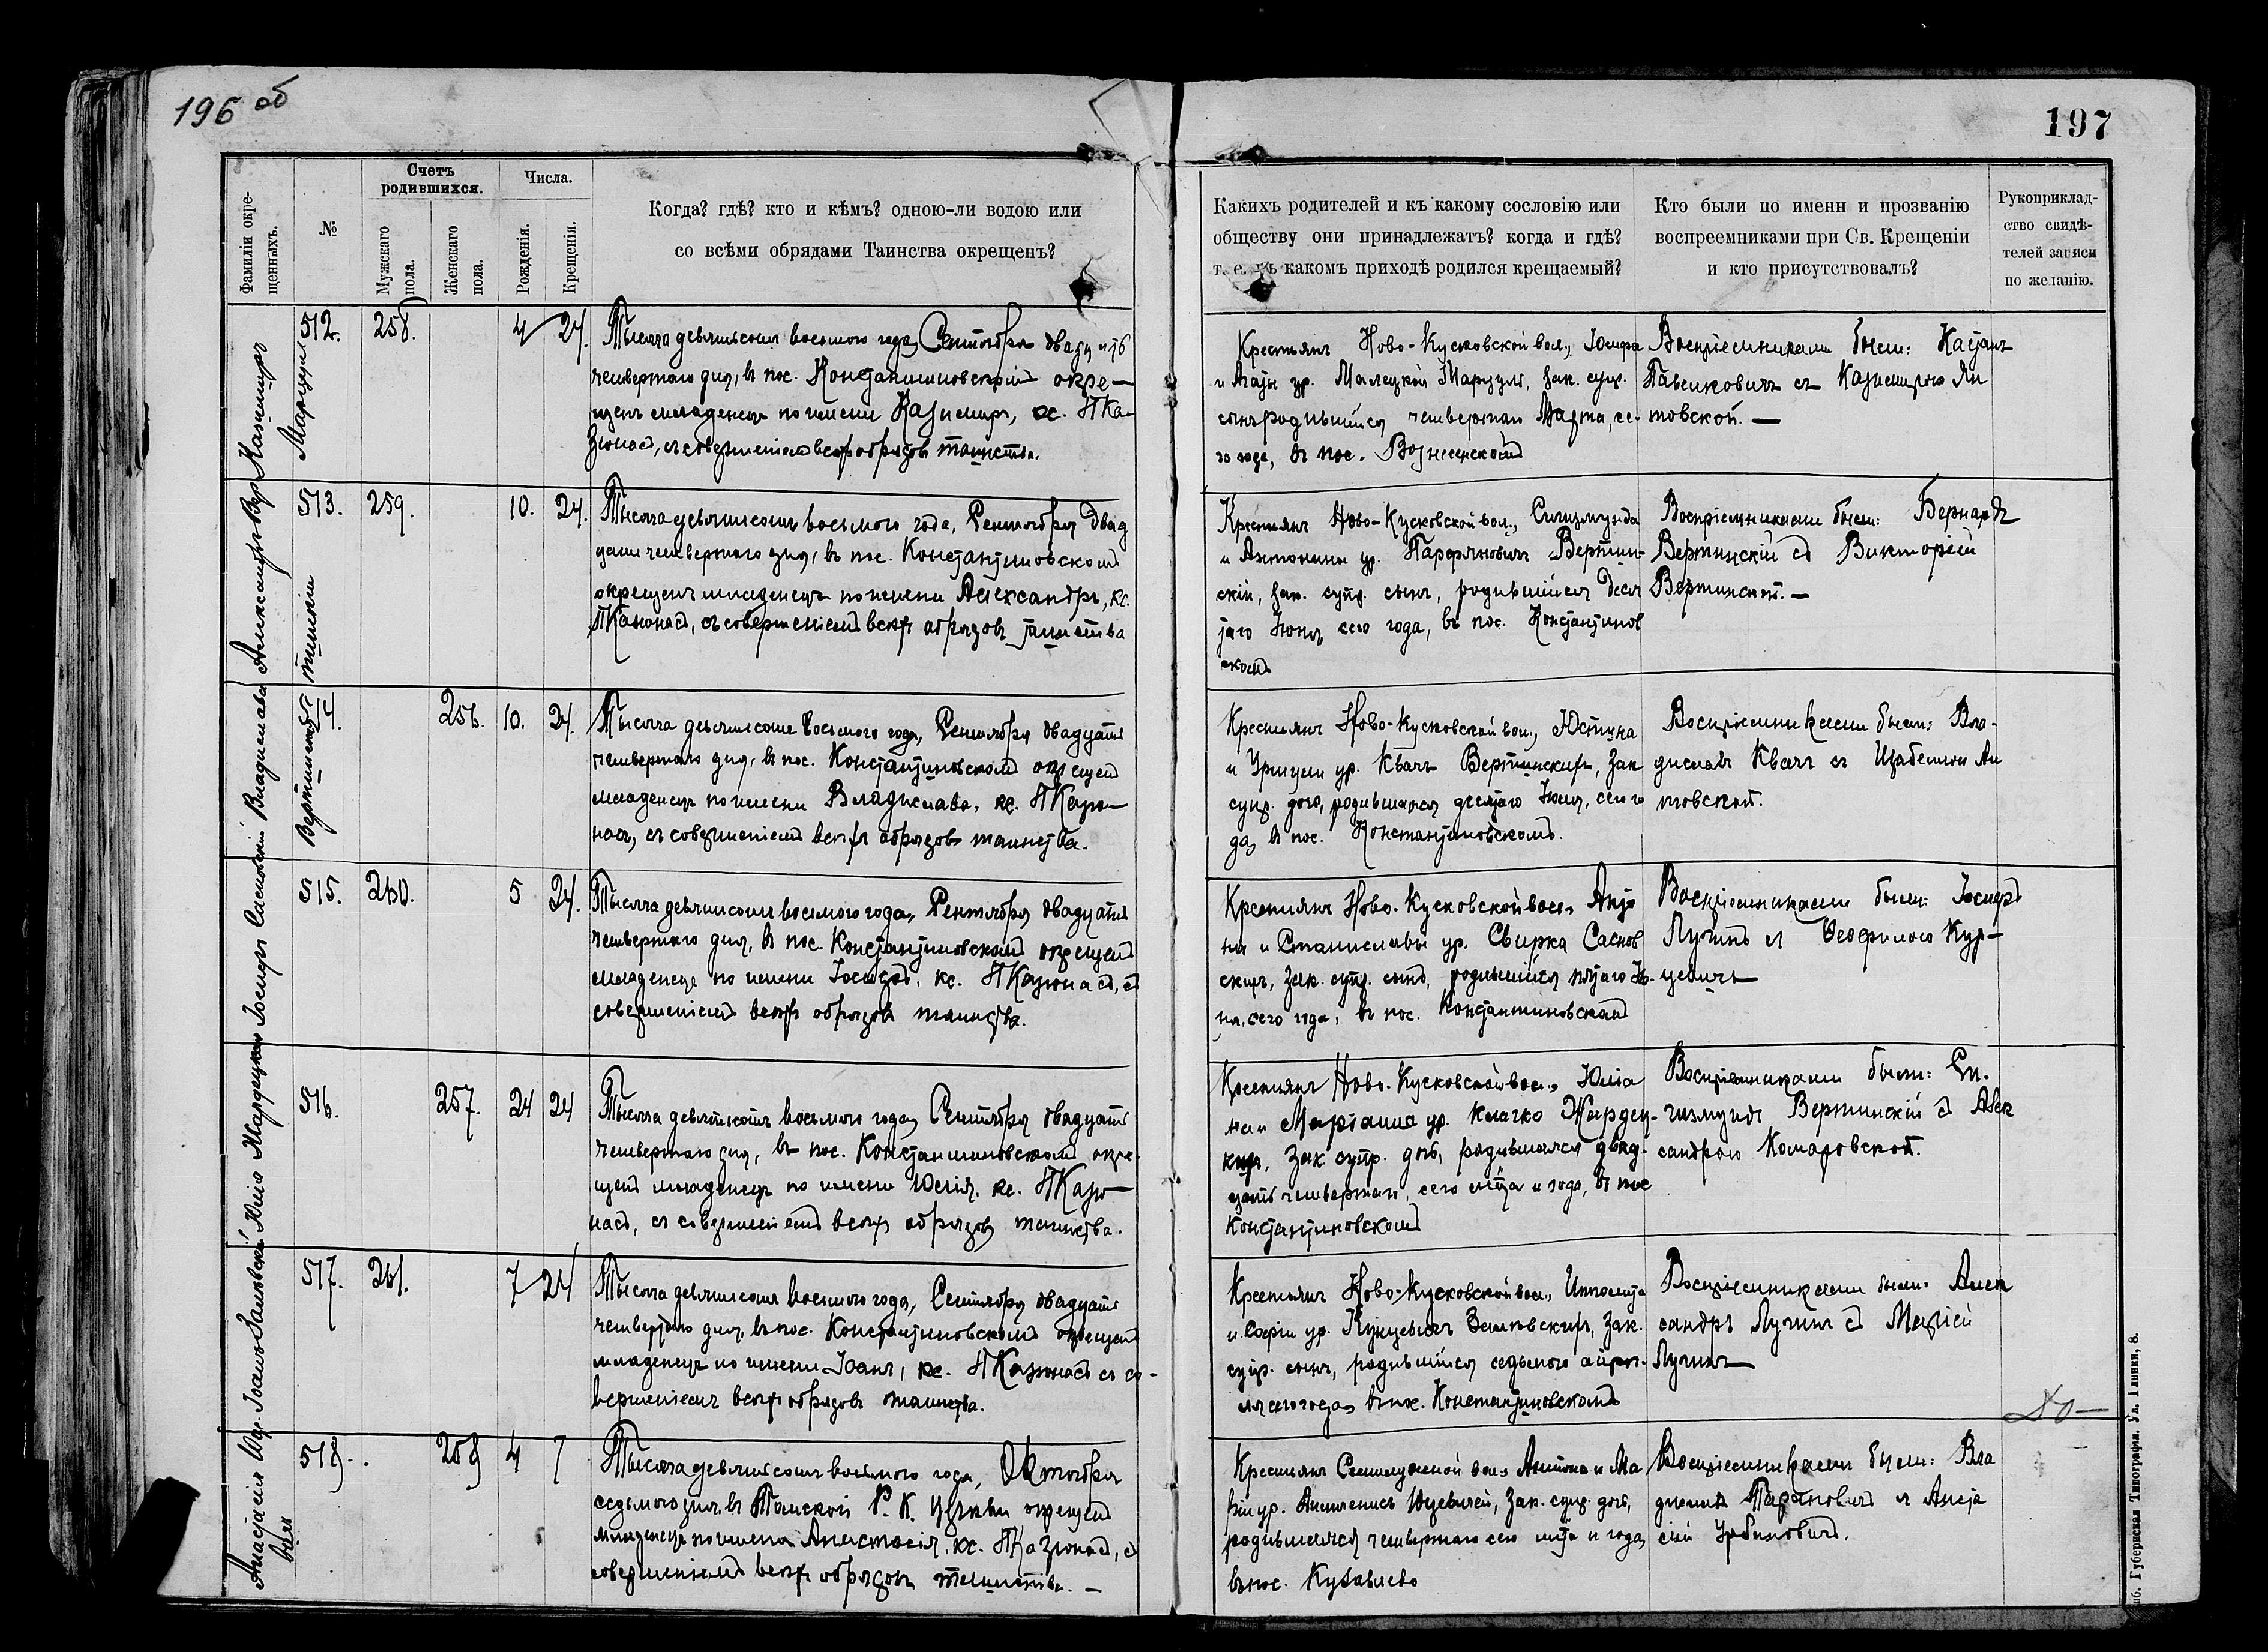 196 об
197
Фамиліи окре-
щенныхъ.
№
Счетъ
родившихся.
Мужскаго
пола.
Женскаго
пола.
Числа.
Рожденія.
Крещенія.
Когда? гдѣ? кто и кѣмъ? одною-ли водою или
со всѣми обрядами Таинства окрещенъ?
Какихъ родителей и къ какому сословію или
обществу они принадлежатъ? когда и гдѣ?
т. е. въ какомъ приходѣ родился крещаемый?
Кто были по имени и прозванію
воспреемниками при Св. Крещеніи
и кто присутствовалъ?
Рукоприклад-
ство свидѣ-
телей записи
по желанію.
Казимиръ
512. 258. 4 24.
Тысяча девятьсотъ восьмого года, Сентября двадцать
четвертаго дня, въ пос. Константиновскомъ окре-
щенъ младенецъ по имени Казимиръ, кс. І Ка-
зюнасъ, съ совершеніемъ всѣхъ обрядовъ таинства.
Крестьянъ Ново-Кусковской вол., Іосифа
и Агаты ур. Малецкой зак. супр.
сынъ родившійся четвертаго Марта, се-
го года, въ пос. Вознесенскомъ
Воспріемниками были:
съ Казимирою Ян
товской. —
Александръ Вер
тинскій
513. 259. 10. 24.
Тысяча девятьсотъ восьмого года, Сентября двад
цать четвертаго дня, въ пос. Константиновскомъ
окрещенъ младенецъ по имени Александръ, кс.
І Казюнасъ, съ совершеніемъ всѣхъ обрядовъ таинства
Крестьянъ Ново-Кусковской вол., Сигизмунда
и Антонины ур. Парфяновичъ Вертин-
скій, зак. супр. сынъ, родившійся деся
таго Іюня сего года, въ пос. Константинов
скомъ
Воспріемниками были: Бернардъ
Вертинскій съ Викторіей
Вертинской. —
Владислава
Вертинская
514. 256. 10. 24.
Тысяча девятьсотъ восьмого года, Сентября двадцать
четвертаго дня, въ пос. Константиновскомъ окрещенъ
младенецъ по имени Владислава, кс. І Казю-
насъ, съ совершеніемъ всѣхъ обрядовъ таинства.
Крестьянъ Ново-Кусковской вол., Юстина
и Уршули ур. Квачъ Вертинскихъ, зак
супр. дочь, родившаяся десятаго Іюля, сего го
да, въ пос. Константиновскомъ.
Воспріемниками были: Вла-
диславъ Квачъ съ Изабеллою Ян
товской.
Іосифъ Сасновскій
515. 260. 5 24.
Тысяча девятьсотъ восьмого года, Сентября двадцать
четвертаго дня, въ пос. Константиновскомъ окрещенъ
младенецъ по имени Іосифъ, кс. І Казюнасъ, съ
совершеніемъ всѣхъ обрядовъ таинства.
Крестьянъ Ново-Кусковской вол., Анто
на и Станиславы ур. Свирка Саснов
скихъ, зак. супр. сынъ, родившійся пятаго Ію-
ня, сего года, въ пос. Константиновскомъ
Воспріемниками были: Іосифъ
Лучинъ съ Теофилою Кур-
цевичъ
Юлія Жардецкая
516. 257. 24 24
Тысяча девятьсотъ восьмого года, Сентября двадцать
четвертаго дня, въ пос. Константиновскомъ окре-
щенъ младенецъ по имени Юлія, кс. І Казю-
насъ, съ совершеніемъ всѣхъ обрядовъ таинства.
Крестьянъ Ново-Кусковской вол., Юліа
на и Маріанны ур. Клачко Жардец-
кихъ, зак супр. дочь, родившаяся двад-
цать четвертаго, сего мѣсяца и года, въ пос
Константиновскомъ
Воспріемниками были: Си-
гизмундъ Вертинскій съ Алек
сандрою Комаровской.
Іоаннъ Зальковскій
517. 261. 7 24
Тысяча девятьсотъ восьмого года, Сентября двадцать
четвертаго дня, въ пос. Константиновскомъ окрещенъ
младенецъ по имени Іоаннъ, кс. І Казюнасъ съ со-
вершеніемъ всѣхъ обрядовъ таинства.
Крестьянъ Ново-Кусковской вол., Ипполита
и Софіи ур. зак.
супр. сынъ, родившійся седьмого апрѣ-
ля сего года, въ пос. Константиновскомъ
Воспріемниками были: Алек
сандръ Лучинъ съ Маріей
Лучинъ
Анастасія
518. 258 4 7
Тысяча девятьсотъ восьмого года, Октября
седьмого дня, въ Томской Р. К. церкви окрещенъ
младенецъ по имени Анастасія, кс. І Казюнасъ, съ
совершеніемъ всѣхъ обрядовъ таинства. —
Крестьянъ вол., Антона и Ма
ріи ур. зак. супр. дочь,
родившаяся четвертаго сего мѣсяца и года,
въ пос.
Воспріемниками были: Вла
диславъ Тарановичъ и Анста
сіей Урбановичъ.
Губернская Типографія. Ул. Глинки, 8.